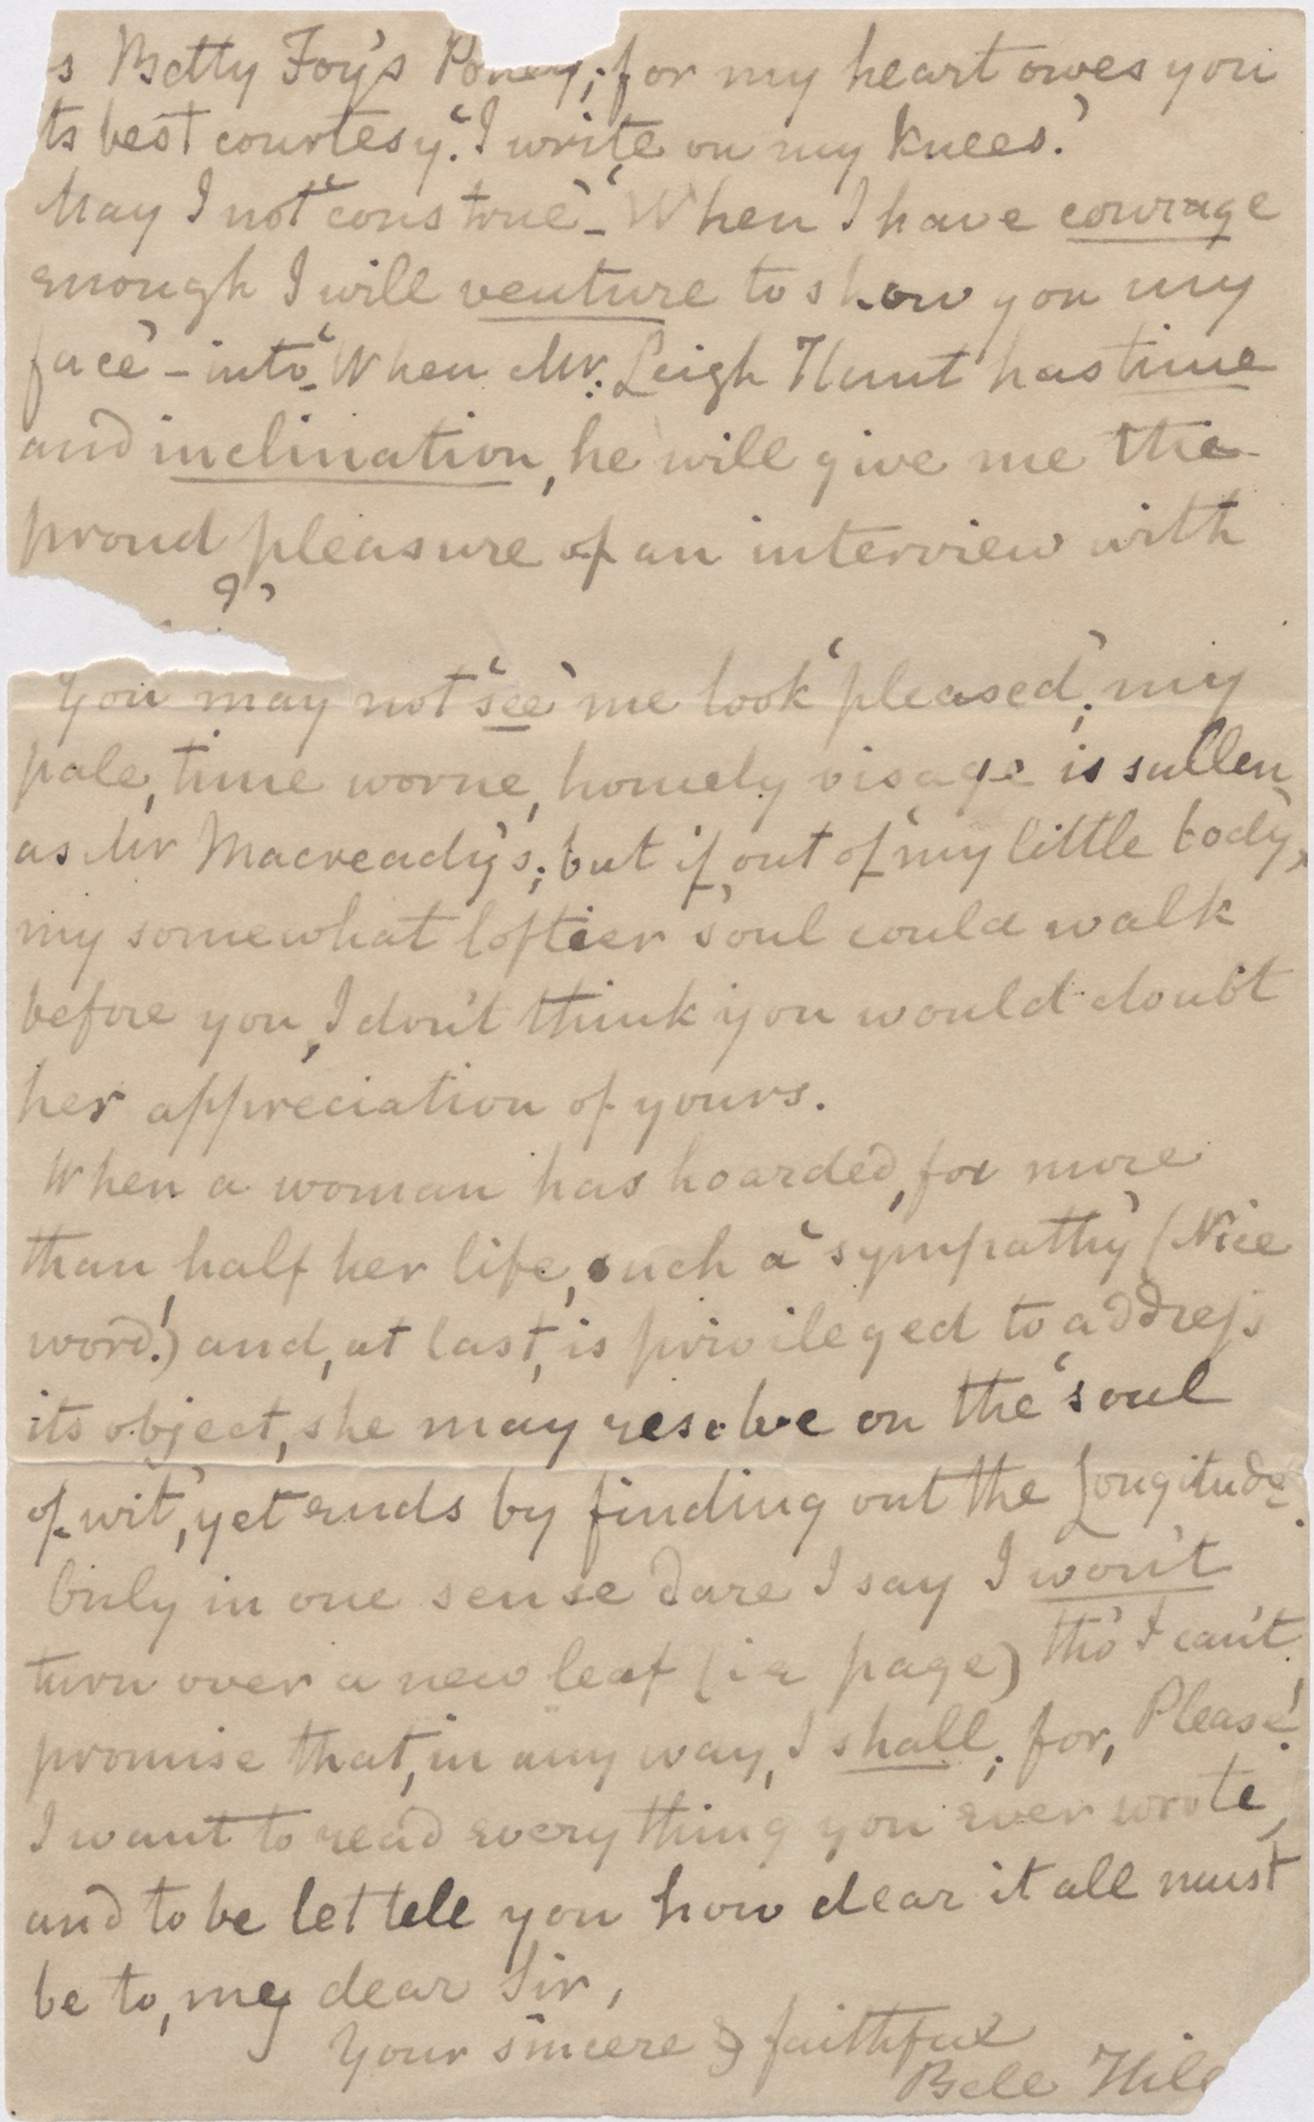 s Betty Foy's Poney; for my heart owes you
ts best courtesy. 'I write on my knees.'
May I not 'construe' – 'When I have courage
enough I will venture to show you my
face' – into 'When Mr. Leigh Hunt has time
and inclination, he will give me the
proud pleasure of an interview with
?'
You may not 'see' me look 'pleased'; my
pale, time worne, homely visage is sullen
as Mr Macready's; but if, out of 'my little body',
my somewhat loftier soul could walk
before you, I don't think you would doubt
her appreciation of yours.
When a woman has hoarded, for more
than half her life, such a 'sympathy' (Nice
word!) and, at last, is privileged to address
its object, she may resolve on the 'soul
of wit', yet ends by finding out the Longitude.
Only in one sense dare I say I won't
turn over a new leaf (ie page) tho' I can't
promise that, in any way, I shall; for, Please!
I want to read everything you ever wrote,
and to be let tell you how dear it all must
be to, my dear Sir,
Your sincere & faithful
Bell Hill